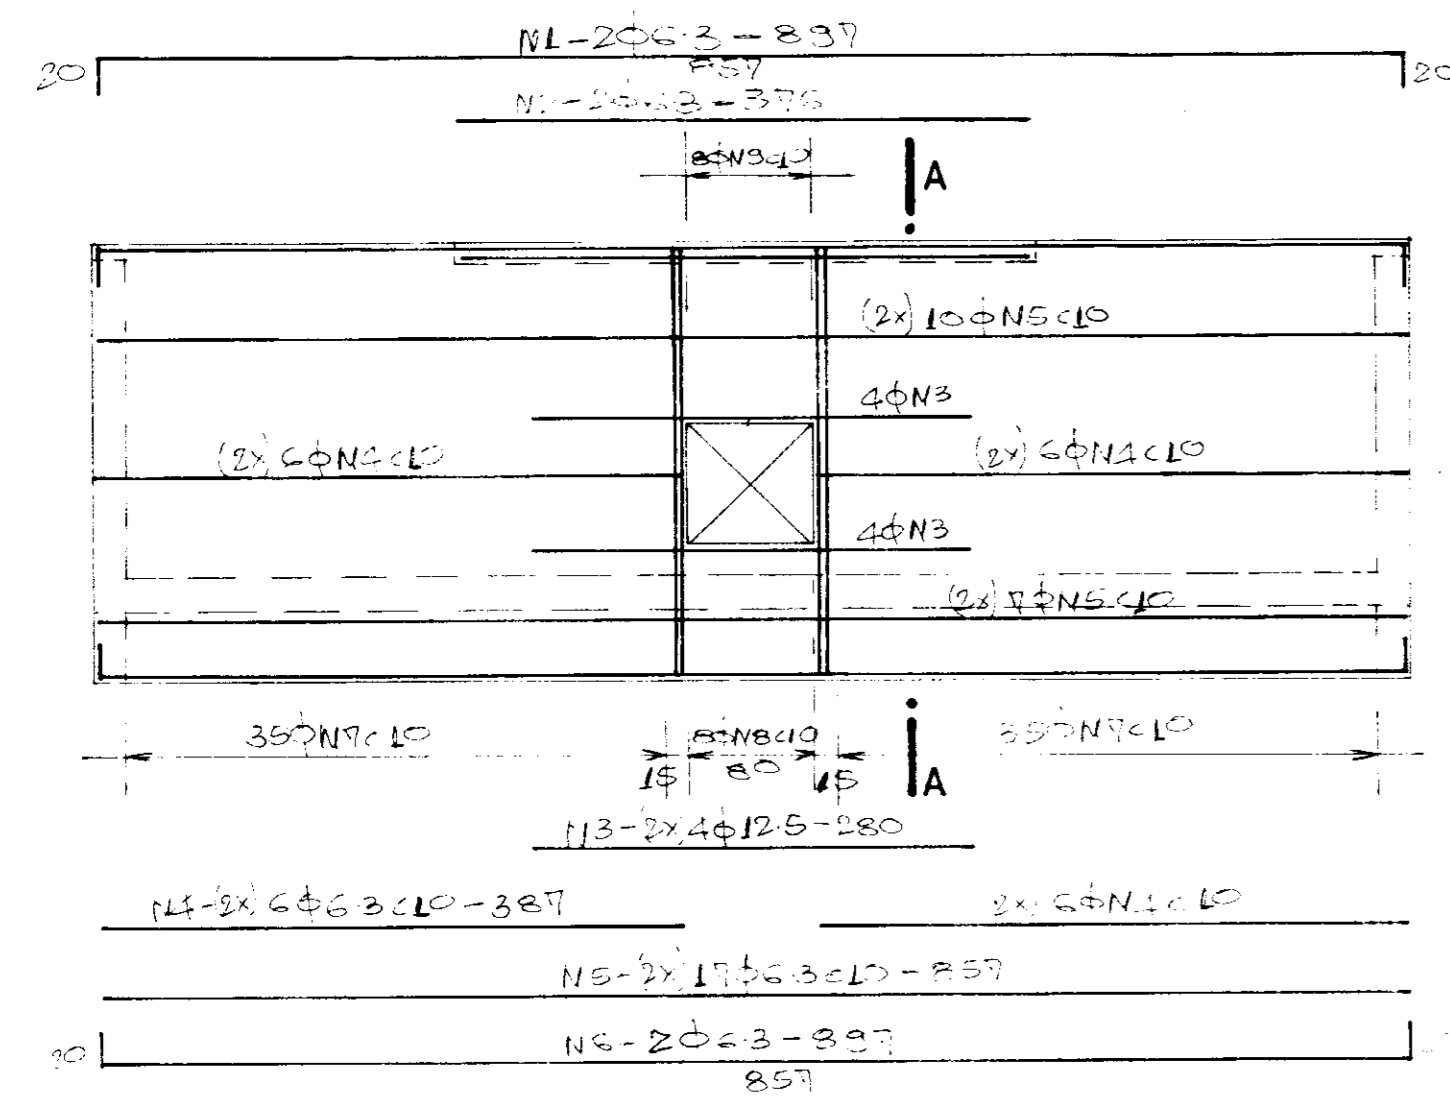 N1-2ϕ6.3-897
20
857
20
N2-2ϕ6.3-376
8ϕN9c10
A
(2x) 10ϕN5c10
4ϕN3
(2x) 6ϕN4c10
(2x) 6ϕN4c10
4ϕN3
(2x) 7ϕN5c10
35ϕN7c10
8ϕN8c10
35ϕN7c10
15
80
15
A
N3-2x)4ϕ12.5-280
N4-(2x) 6ϕ6.3c10-387
2x) 6ϕN4c10
N5-2x) 17ϕ6.3c10-857
N6-2ϕ6.3-897
20
857